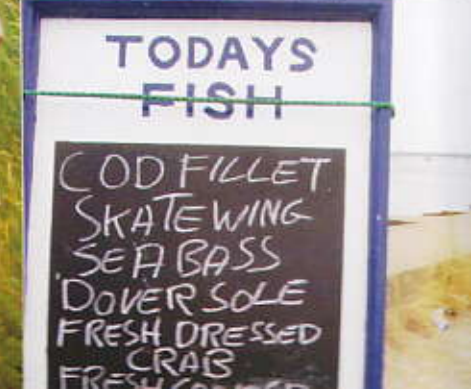 TODAYS
FISH
COD FILLET
SKATE WING
SEA BASS
DOVER SOLE
FRESH DRESSED
CRAB
FRESH